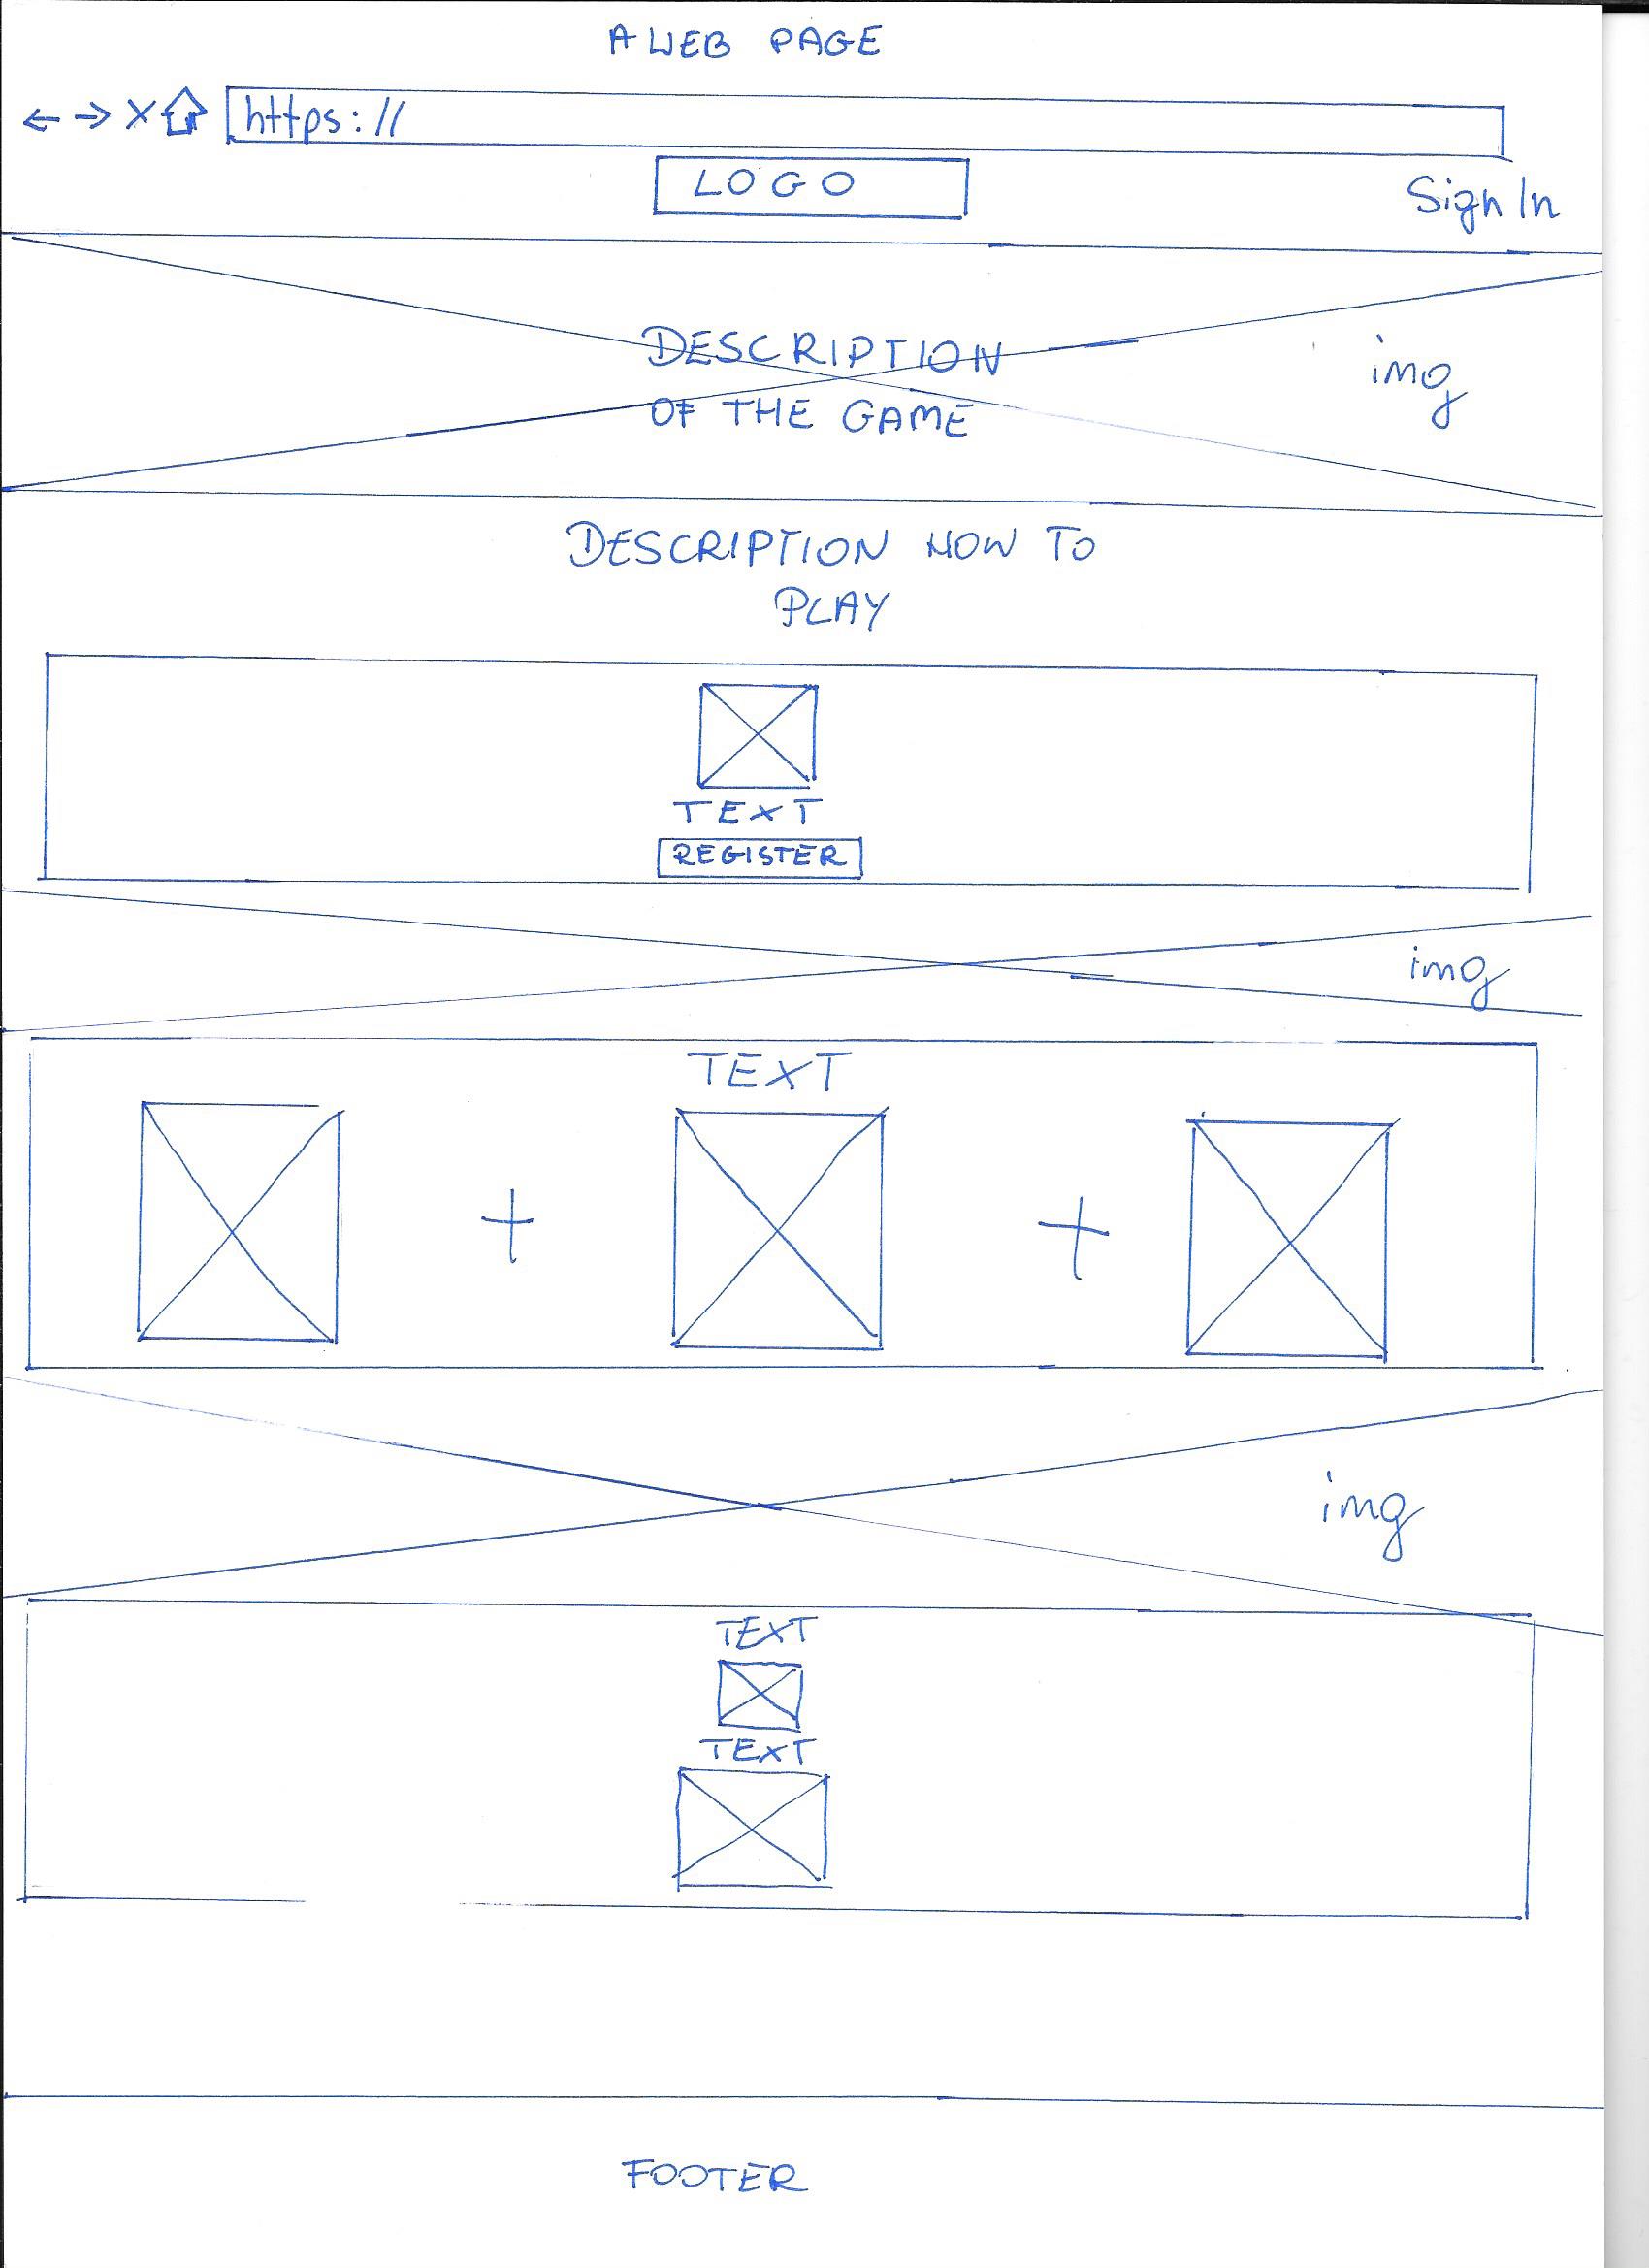 A WEB PAGE
https://
LOGO
Sign In
DESCRIPTION
img
OF THE GAME
DESCRIPTION HOW TO
PLAY
TEXT
REGISTER
img
TEXT
+ +
img
TEXT
TEXT
FOOTER